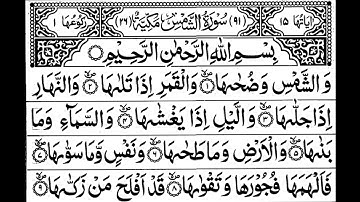 اٰیَاتُهَا ١٥ (٩١) سُوْرَةُ الشَّمْسِ مَكِّيَّةٌ (٢٦) رُكُوْعُهَا ١
بِسْمِ اللّٰهِ الرَّحْمٰنِ الرَّحِيْمِ
وَ الشَّمْسِ وَ ضُحٰىهَا ۝١ وَ الْقَمَرِ اِذَا تَلٰىهَا ۝٢ وَ النَّهَارِ
اِذَا جَلّٰىهَا ۝٣ وَ الَّيْلِ اِذَا يَغْشٰىهَا ۝٤ وَ السَّمَآءِ وَ مَا
بَنٰىهَا ۝٥ وَ الْاَرْضِ وَ مَا طَحٰىهَا ۝٦ وَ نَفْسٍ وَّ مَا سَوّٰىهَا ۝٧
فَاَلْهَمَهَا فُجُوْرَهَا وَ تَقْوٰىهَا ۝٨ قَدْ اَفْلَحَ مَنْ زَكّٰىهَا ۝٩